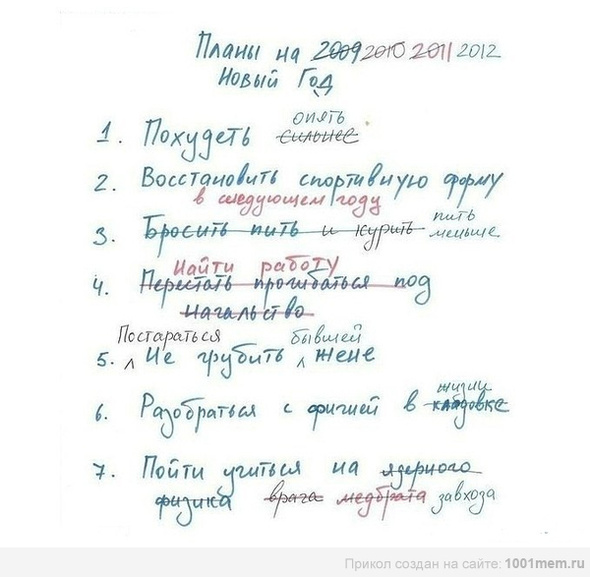 Планы на 2009 2010 2011 2012
Новый Год
опять
1. Похудеть сильнее
2. Восстановить спортивную форму
в следующем году
пить
3. Бросить пить и курить меньше
Найти работу
4. Перестать прогибаться под
начальство
Постараться бывшей
5. Не грубить жене
жизни
6. Разобраться с фигнёй в кладовке
7. Пойти учиться на ядерного
физика врача медбрата завхоза
Прикол создан на сайте: 1001mem.ru